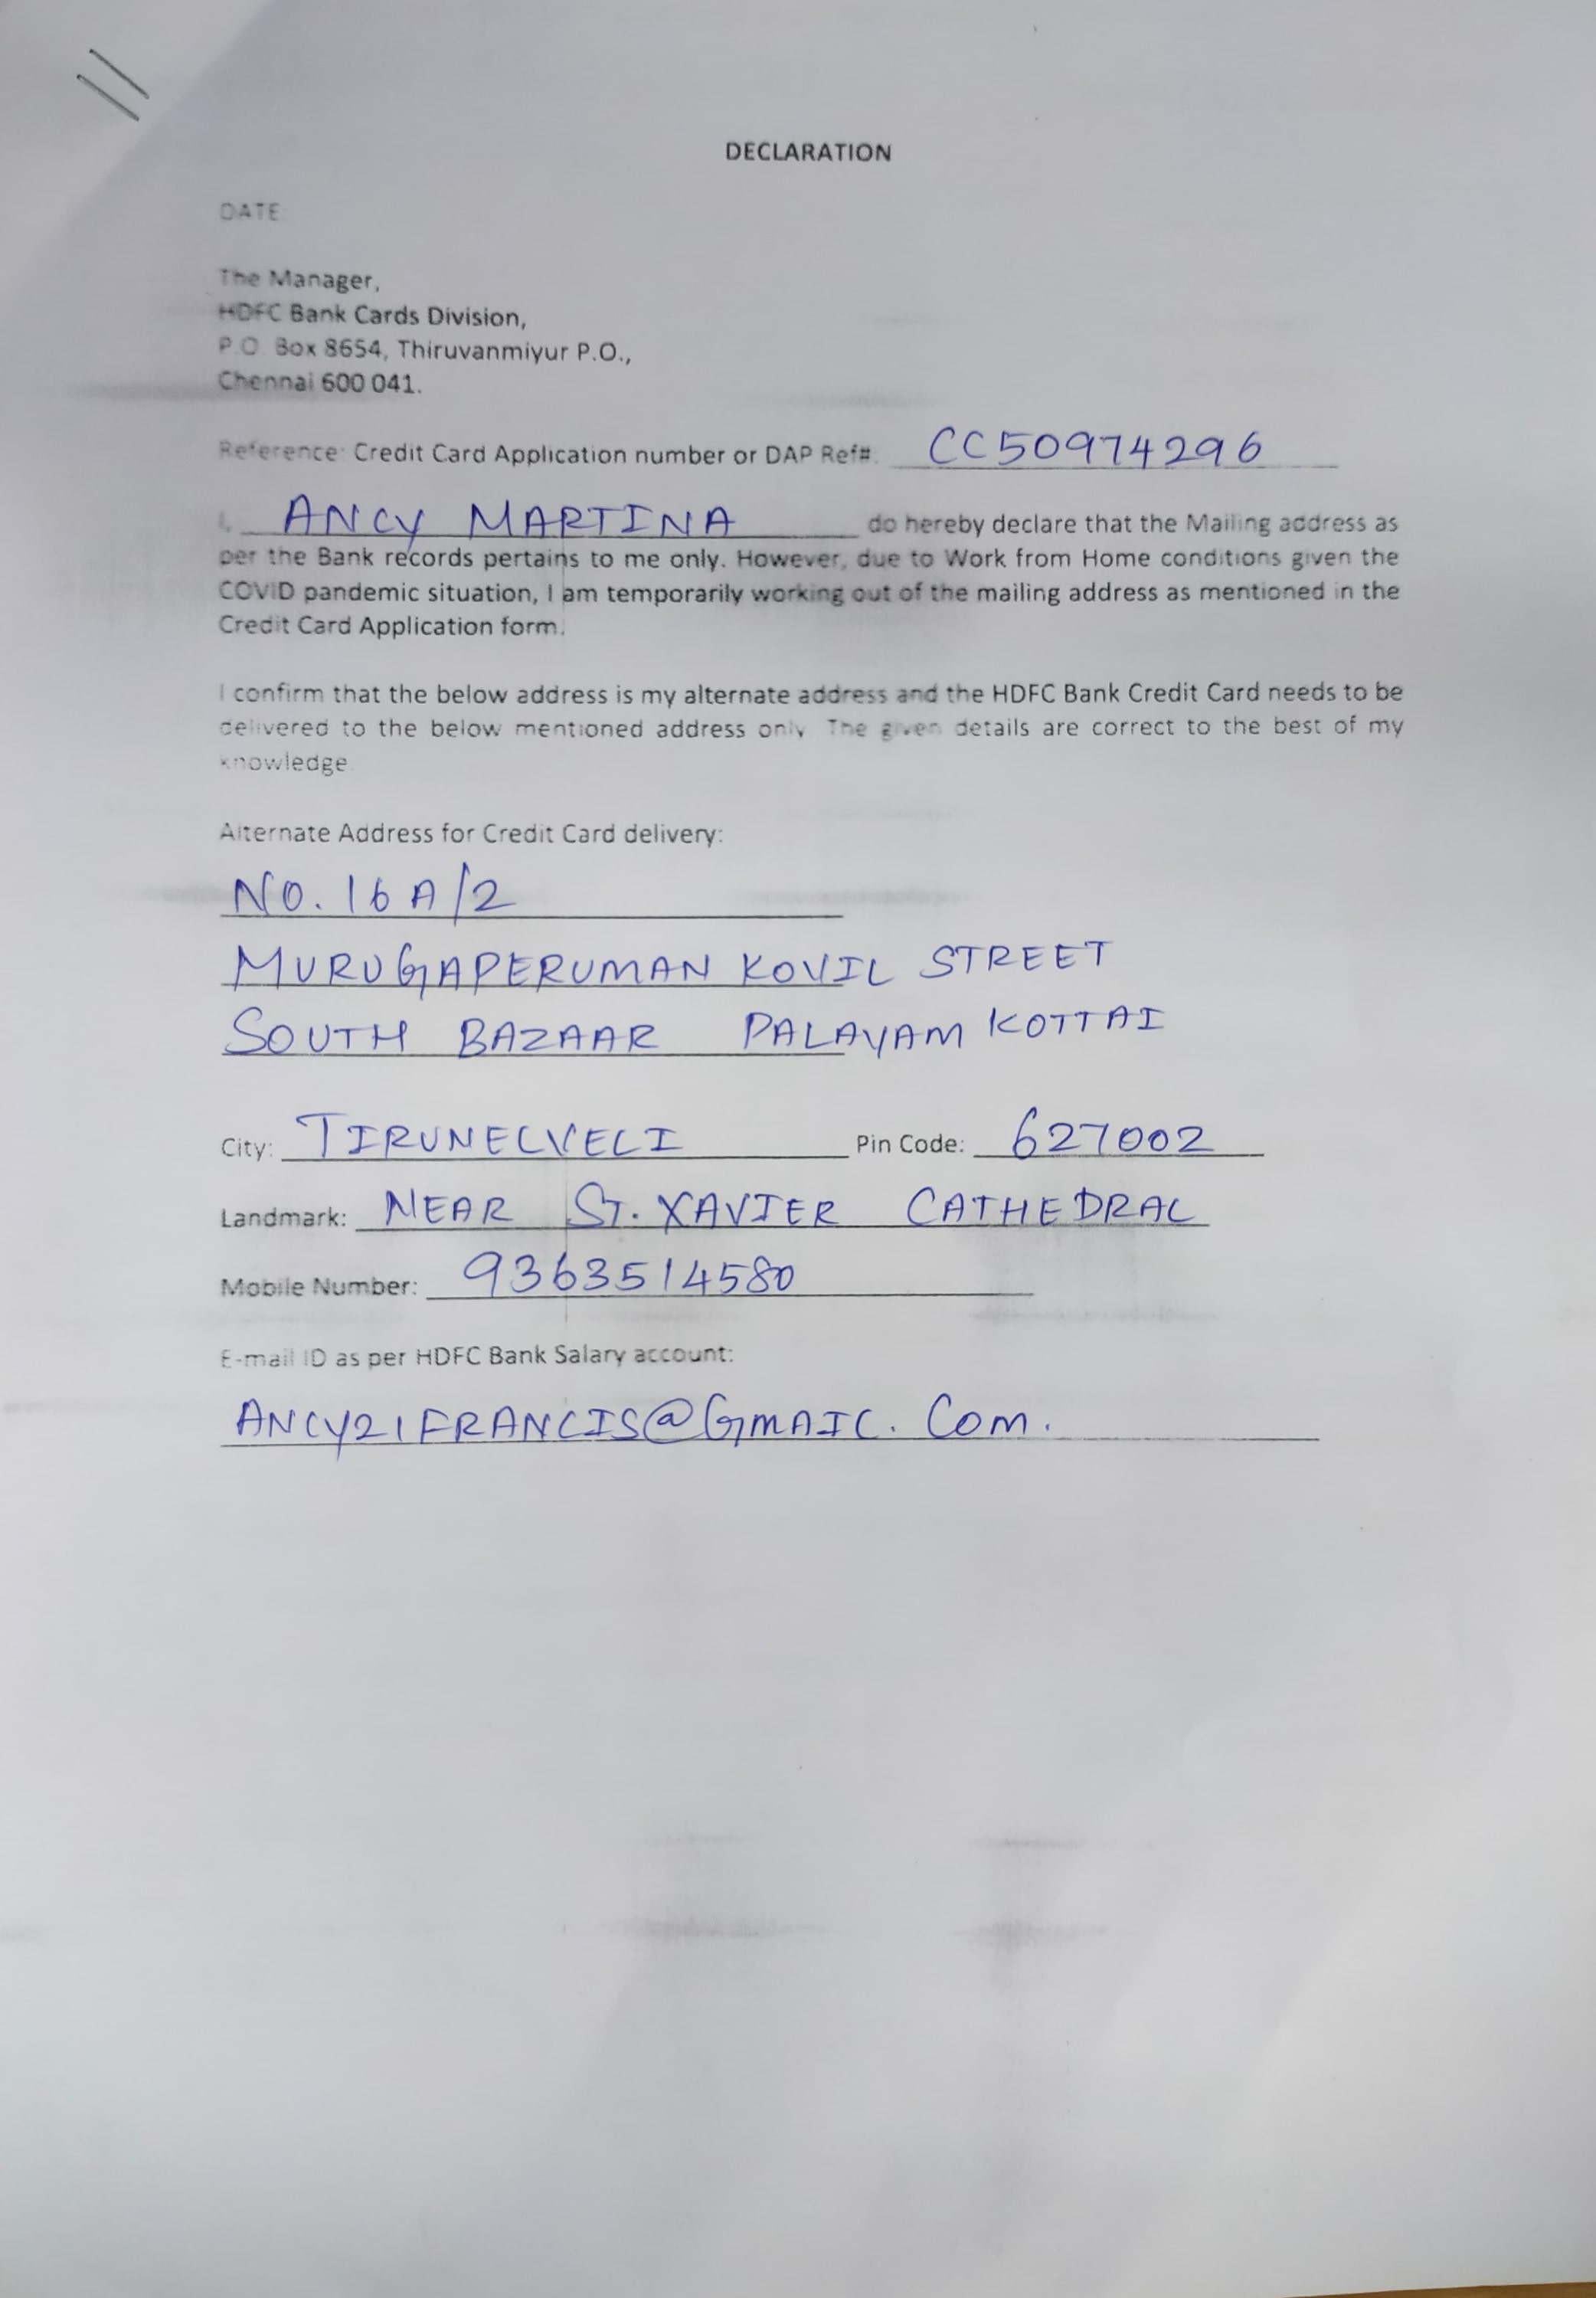 DECLARATION
DATE:
The Manager,
HDFC Bank Cards Division,
P.O. Box 8654, Thiruvanmiyur P.O.,
Chennai 600 041.
Reference: Credit Card Application number or DAP Ref#. CC50974296
I, ANCY MARTINA do hereby declare that the Mailing address as
per the Bank records pertains to me only. However, due to Work from Home conditions given the
COVID pandemic situation, I am temporarily working out of the mailing address as mentioned in the
Credit Card Application form.
I confirm that the below address is my alternate address and the HDFC Bank Credit Card needs to be
delivered to the below mentioned address only. The given details are correct to the best of my
knowledge.
Alternate Address for Credit Card delivery:
NO. 16 A/2
MURUGAPERUMAN KOVIL STREET
SOUTH BAZAAR PALAYAM KOTTAI
City: TIRUNELVELI Pin Code: 627002
Landmark: NEAR ST. XAVIER CATHEDRAL
Mobile Number: 9363514580
E-mail ID as per HDFC Bank Salary account:
ANCY21FRANCIS@GMAIL.COM.